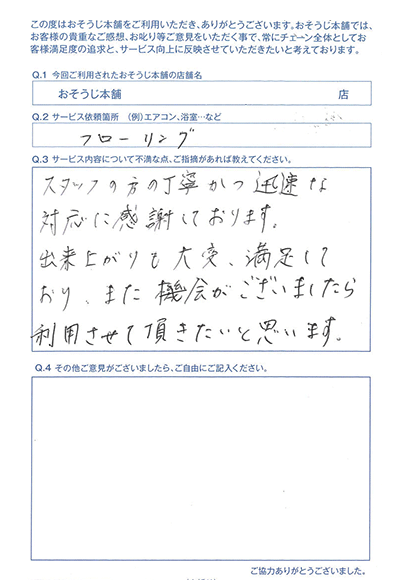 この度はおそうじ本舗をご利用いただき、ありがとうございます。おそうじ本舗では、
お客様の貴重なご感想、お叱り等ご意見をいただく事で、常にチェーン全体としてお
客様満足度の追求と、サービス向上に反映させていただきたいと考えております。
Q.1 今回ご利用されたおそうじ本舗の店舗名
おそうじ本舗 店
Q.2 サービス依頼箇所 (例)エアコン、浴室…など
フローリング
Q.3 サービス内容について不満な点、ご指摘があれば教えてください。
スタッフの方の丁寧かつ迅速な
対応に感謝しております。
出来上がりも大変、満足して
おり、また機会がございましたら
利用させて頂きたいと思います。
Q.4 その他ご意見がございましたら、ご自由にご記入ください。
ご協力ありがとうございました。